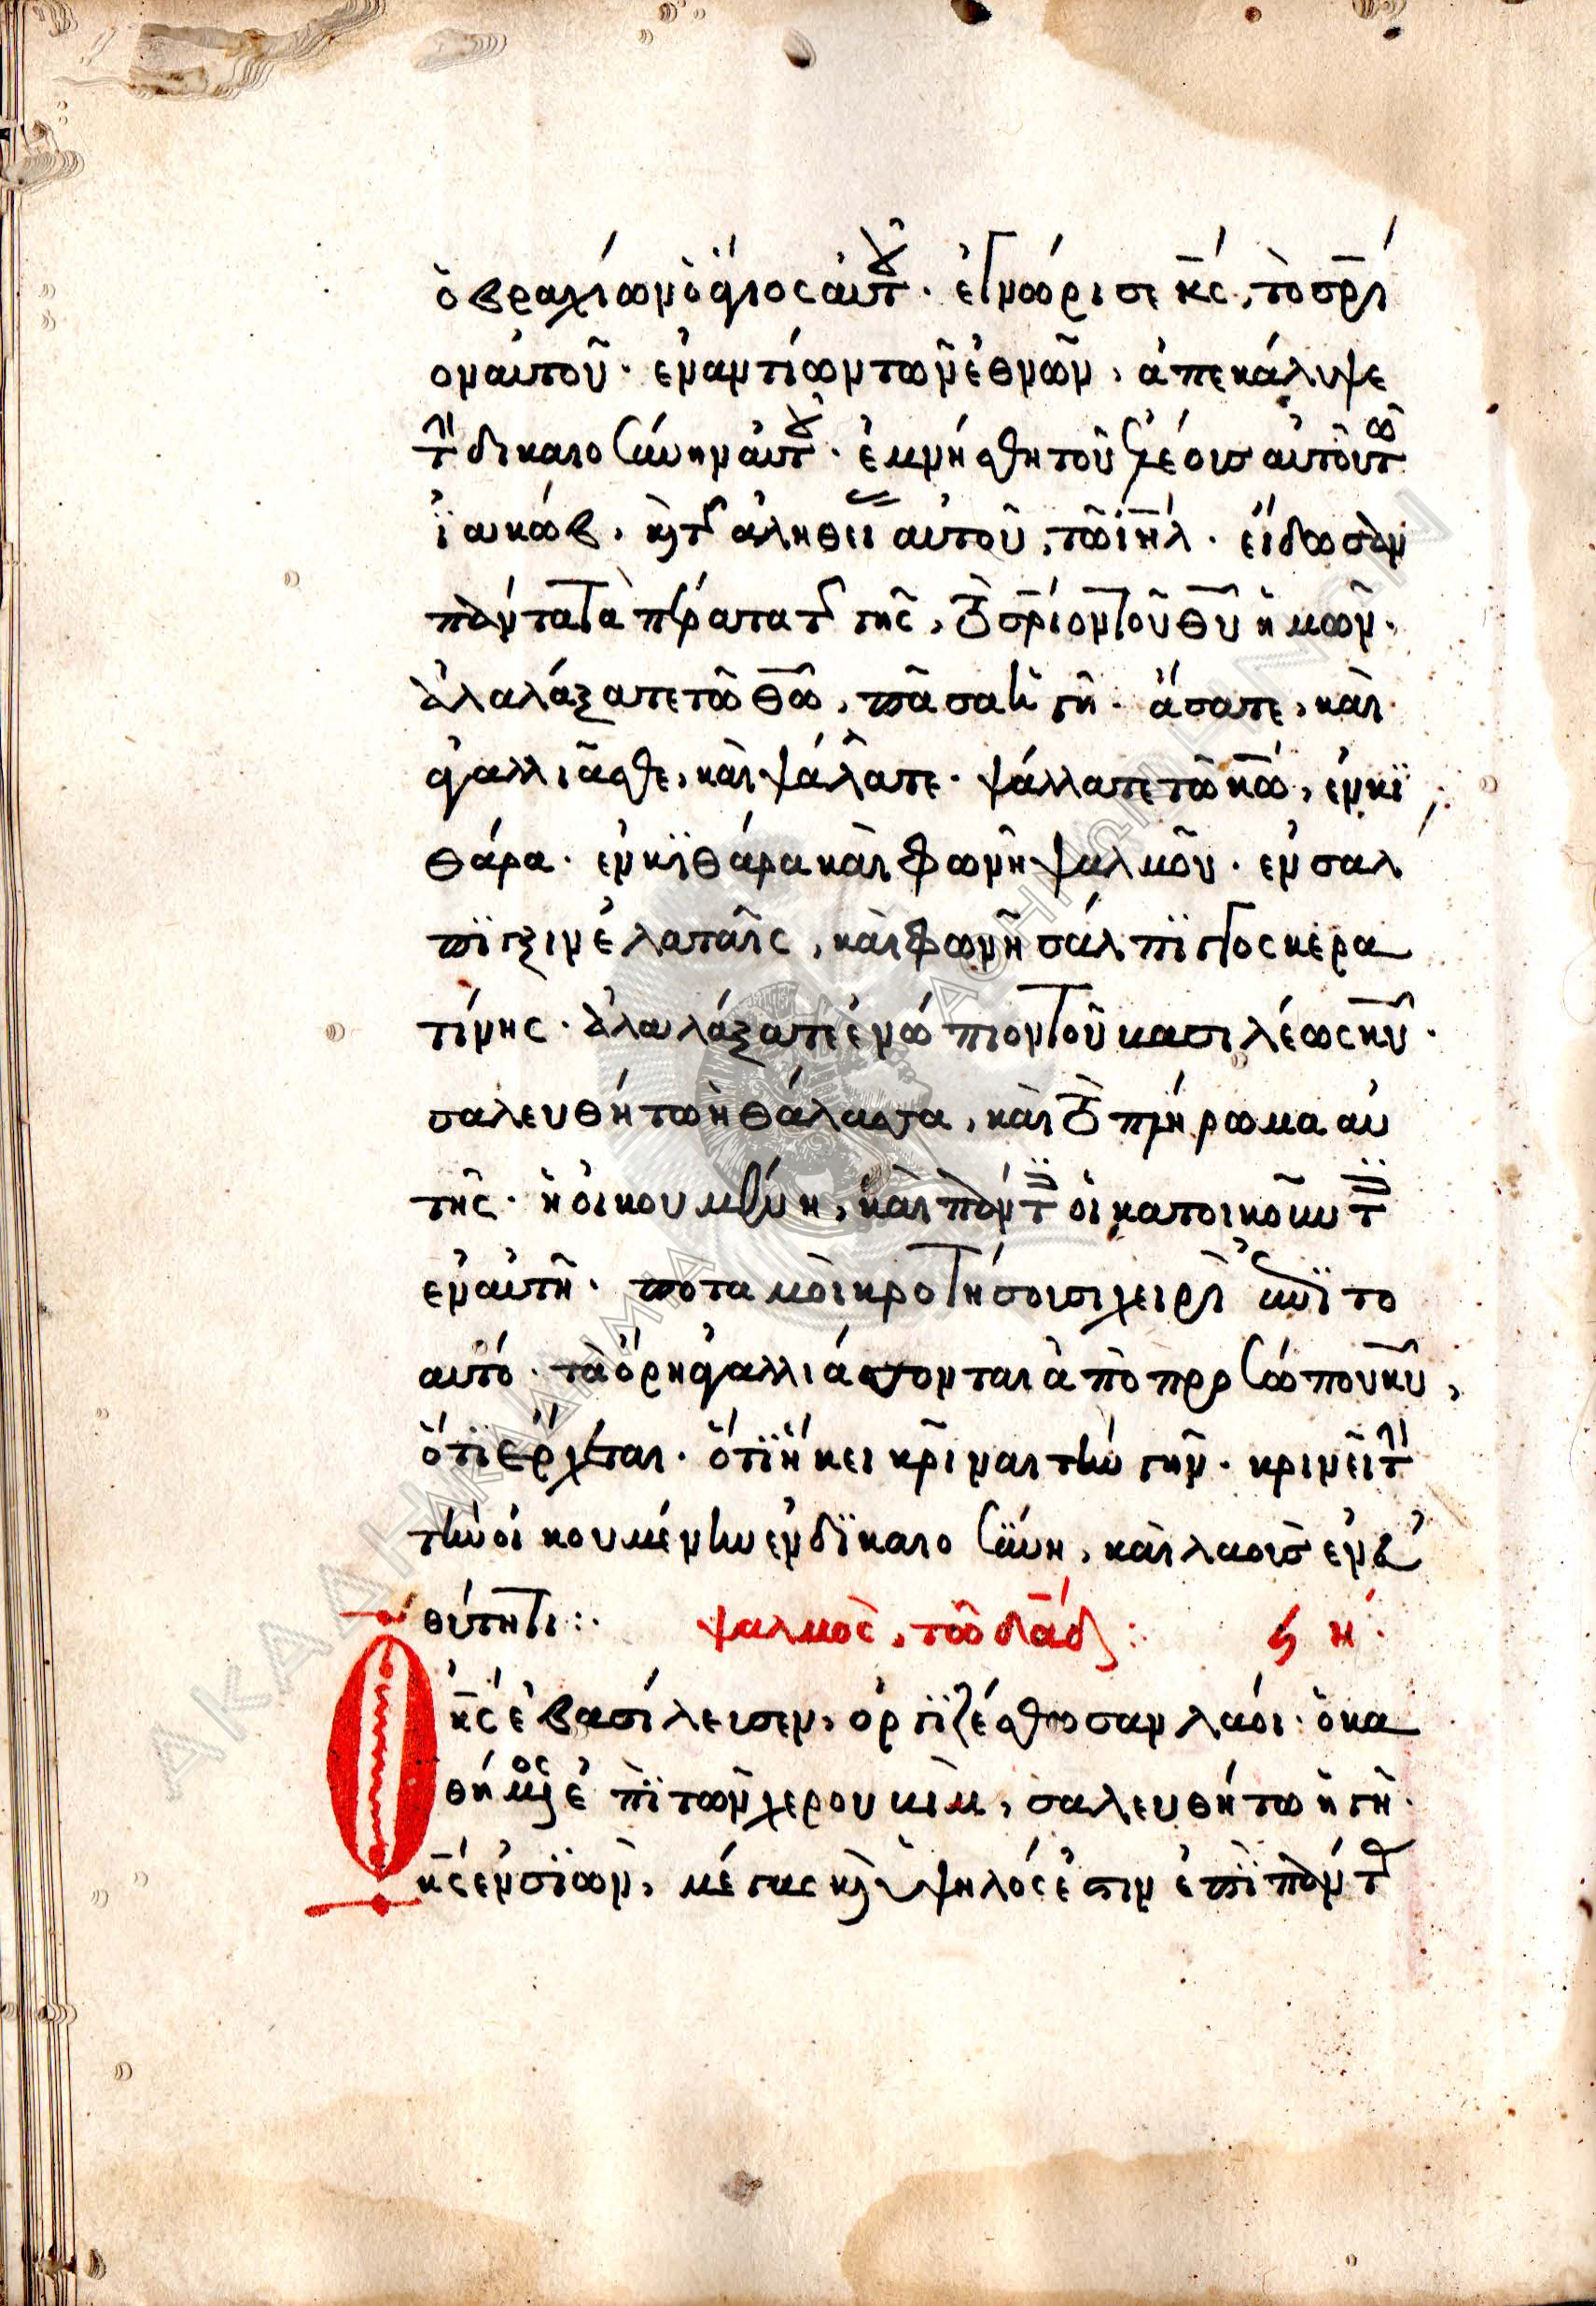 ὁ βραχίων ὁ ἅγιος αὐτοῦ · ἐγνώρισε κς, τὸ σρι
ον αὐτοῦ · εναντίων τῶν ἐθνῶν, ἀπεκάλυψε
τὴν δικαιοσύνην αὐτοῦ · ἐμνήσθη τοῦ ἐλέους αὐτοῦ τῶ
ϊακώβ, κὶ τῆς ἀληθείας αὐτοῦ, τῶ ιηλ · είδωσαν
πάντα τὰ πέρατα τῆς γῆς, τὸ σριον τοῦ θυ ἡμῶν ·
ἀλαλάξατε τῶ θω, πᾶσα ἡ γῆ · ἄσατε, καὶ
ἀγαλλιᾶσθε, καὶ ψάλατε · ψάλλατε τῶ κω, ἐν κϊ
θάρα · εν κϊθάρα καὶ φωνῆ ψαλμοῦ · εν σαλ
πϊγξιν ἐλαταῖς, καὶ φωνῆ σάλπϊγγος κερα
τίνης · ἀλαλάξατε ἐνώπιον τοῦ βασιλέως κυ ·
σαλευθήτω ἡ θάλασσα, καὶ τὸ πλήρωμα αὐ
τῆς · ἡ οἰκουμένη, καὶ πάντες οἱ κατοικοῦντες
εν αὐτῆ · ποταμοὶ κροτήσουσι χειρὶ ἐπϊτο
αυτό · τὰ ὄρη ἀγαλλιάσονται ἀπὸ προσώπου κυ,
ὅτϊ ἔρχεται · ὅτϊ ἥκει κρῖναι τὴν γῆν · κρινεῖ τὴν
τὴν οἰκουμένην ἐν δϊκαιοσύνη, καὶ λαοὺς ἐν ἐυ
θύτητι :·
ψαλμὸς, τῶ δαδ : ϟη ·
Ὁ κς ἐβασίλευσεν, ὀργϊζέσθωσαν λαόι · ὁ κα
θήμενος ἐπϊ τῶν χερουβὶμ, σαλευθήτω ἡ γῆ ·
κς ἐν σϊὼν, μέγας κὶ ὑψηλός ἐστιν ἐπϊ πάντας